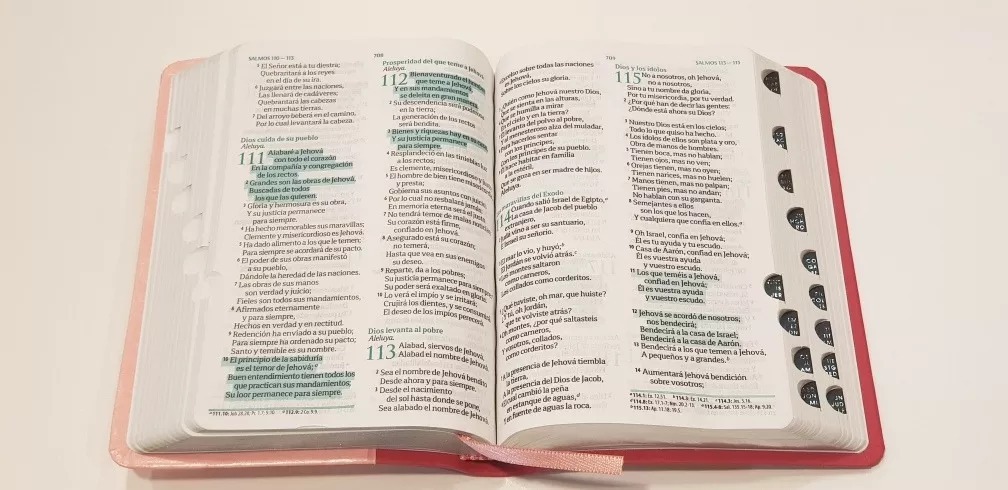 SALMOS 110—113
708
5 El Señor está a tu diestra;
Quebrantará a los reyes
en el día de su ira.
6 Juzgará entre las naciones,
Las llenará de cadáveres;
Quebrantará las cabezas
en muchas tierras.
7 Del arroyo beberá en el camino,
Por lo cual levantará la cabeza.
Dios cuida de su pueblo
Aleluya.
111 Alabaré a Jehová
con todo el corazón
En la compañía y congregación
de los rectos.
2 Grandes son las obras de Jehová,
Buscadas de todos
los que las quieren.
3 Gloria y hermosura es su obra,
Y su justicia permanece
para siempre.
4 Ha hecho memorables sus maravillas;
Clemente y misericordioso es Jehová.
5 Ha dado alimento a los que le temen;
Para siempre se acordará de su pacto.
6 El poder de sus obras manifestó
a su pueblo,
Dándole la heredad de las naciones.
7 Las obras de sus manos
son verdad y juicio;
Fieles son todos sus mandamientos,
8 Afirmados eternamente
y para siempre,
Hechos en verdad y en rectitud.
9 Redención ha enviado a su pueblo;
Para siempre ha ordenado su pacto;
Santo y temible es su nombre.
10 El principio de la sabiduría
es el temor de Jehová;a
Buen entendimiento tienen todos los
que practican sus mandamientos;
Su loor permanece para siempre.
a 111.10: Job 28.28; Pr. 1.7; 9.10. b 112.9: 2 Co. 9.9.
Prosperidad del que teme a Jehová
Aleluya.
112 Bienaventurado el hombre
que teme a Jehová,
Y en sus mandamientos
se deleita en gran manera.
2 Su descendencia será poderosa
en la tierra;
La generación de los rectos
será bendita.
3 Bienes y riquezas hay en su casa,
Y su justicia permanece
para siempre.
4 Resplandeció en las tinieblas luz
a los rectos;
Es clemente, misericordioso y justo.
5 El hombre de bien tiene misericordia,
y presta;
Gobierna sus asuntos con juicio,
6 Por lo cual no resbalará jamás;
En memoria eterna será el justo.
7 No tendrá temor de malas noticias;
Su corazón está firme,
confiado en Jehová.
8 Asegurado está su corazón;
no temerá,
Hasta que vea en sus enemigos
su deseo.
9 Reparte, da a los pobres;
Su justicia permanece para siempre;
Su poder será exaltado en gloria.
10 Lo verá el impío y se irritará;
Crujirá los dientes, y se consumirá.
El deseo de los impíos perecerá.
Dios levanta al pobre
Aleluya.
113 Alabad, siervos de Jehová,
Alabad el nombre de Jehová.
2 Sea el nombre de Jehová bendito
Desde ahora y para siempre.
3 Desde el nacimiento
del sol hasta donde se pone,
Sea alabado el nombre de Jehová.
709
SALMOS 113—115
sobre todas las naciones
Jehová,
Sobre los cielos su gloria.
¿Quién como Jehová nuestro Dios,
Que se sienta en las alturas,
Que se humilla a mirar
En el cielo y en la tierra?
levanta del polvo al pobre,
al menesteroso alza del muladar,
Para hacerlos sentar
con los príncipes,
Con los príncipes de su pueblo.
hace habitar en familia
a la estéril,
Que se goza en ser madre de hijos.
Aleluya.
maravillas del Éxodo
Cuando salió Israel de Egipto,a
La casa de Jacob del pueblo
extranjero,
Judá vino a ser su santuario,
Israel su señorío.
El mar lo vio, y huyó;b
El Jordán se volvió atrás.c
Los montes saltaron
como carneros,
collados como corderitos.
¿Qué tuviste, oh mar, que huiste?
¿Y tú, oh Jordán,
que te volviste atrás?
montes, ¿por qué saltasteis
como carneros,
Y vosotros, collados,
como corderitos?
la presencia de Jehová tiembla
la tierra,
A la presencia del Dios de Jacob,
cual cambió la peña
en estanque de aguas,d
Y en fuente de aguas la roca.
Dios y los ídolos
115 No a nosotros, oh Jehová,
no a nosotros,
Sino a tu nombre da gloria,
Por tu misericordia, por tu verdad.
2 ¿Por qué han de decir las gentes:
¿Dónde está ahora su Dios?
3 Nuestro Dios está en los cielos;
Todo lo que quiso ha hecho.
4 Los ídolos de ellos son plata y oro,
Obra de manos de hombres.
5 Tienen boca, mas no hablan;
Tienen ojos, mas no ven;
6 Orejas tienen, mas no oyen;
Tienen narices, mas no huelen;
7 Manos tienen, mas no palpan;
Tienen pies, mas no andan;
No hablan con su garganta.
8 Semejantes a ellos
son los que los hacen,
Y cualquiera que confía en ellos.e
9 Oh Israel, confía en Jehová;
Él es tu ayuda y tu escudo.
10 Casa de Aarón, confiad en Jehová;
Él es vuestra ayuda
y vuestro escudo.
11 Los que teméis a Jehová,
confiad en Jehová;
Él es vuestra ayuda
y vuestro escudo.
12 Jehová se acordó de nosotros;
nos bendecirá;
Bendecirá a la casa de Israel;
Bendecirá a la casa de Aarón.
13 Bendecirá a los que temen a Jehová,
A pequeños y a grandes.
14 Aumentará Jehová bendición
sobre vosotros;